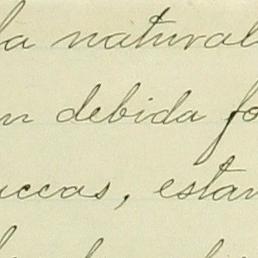 la natural
n debida fo
uccas, estan